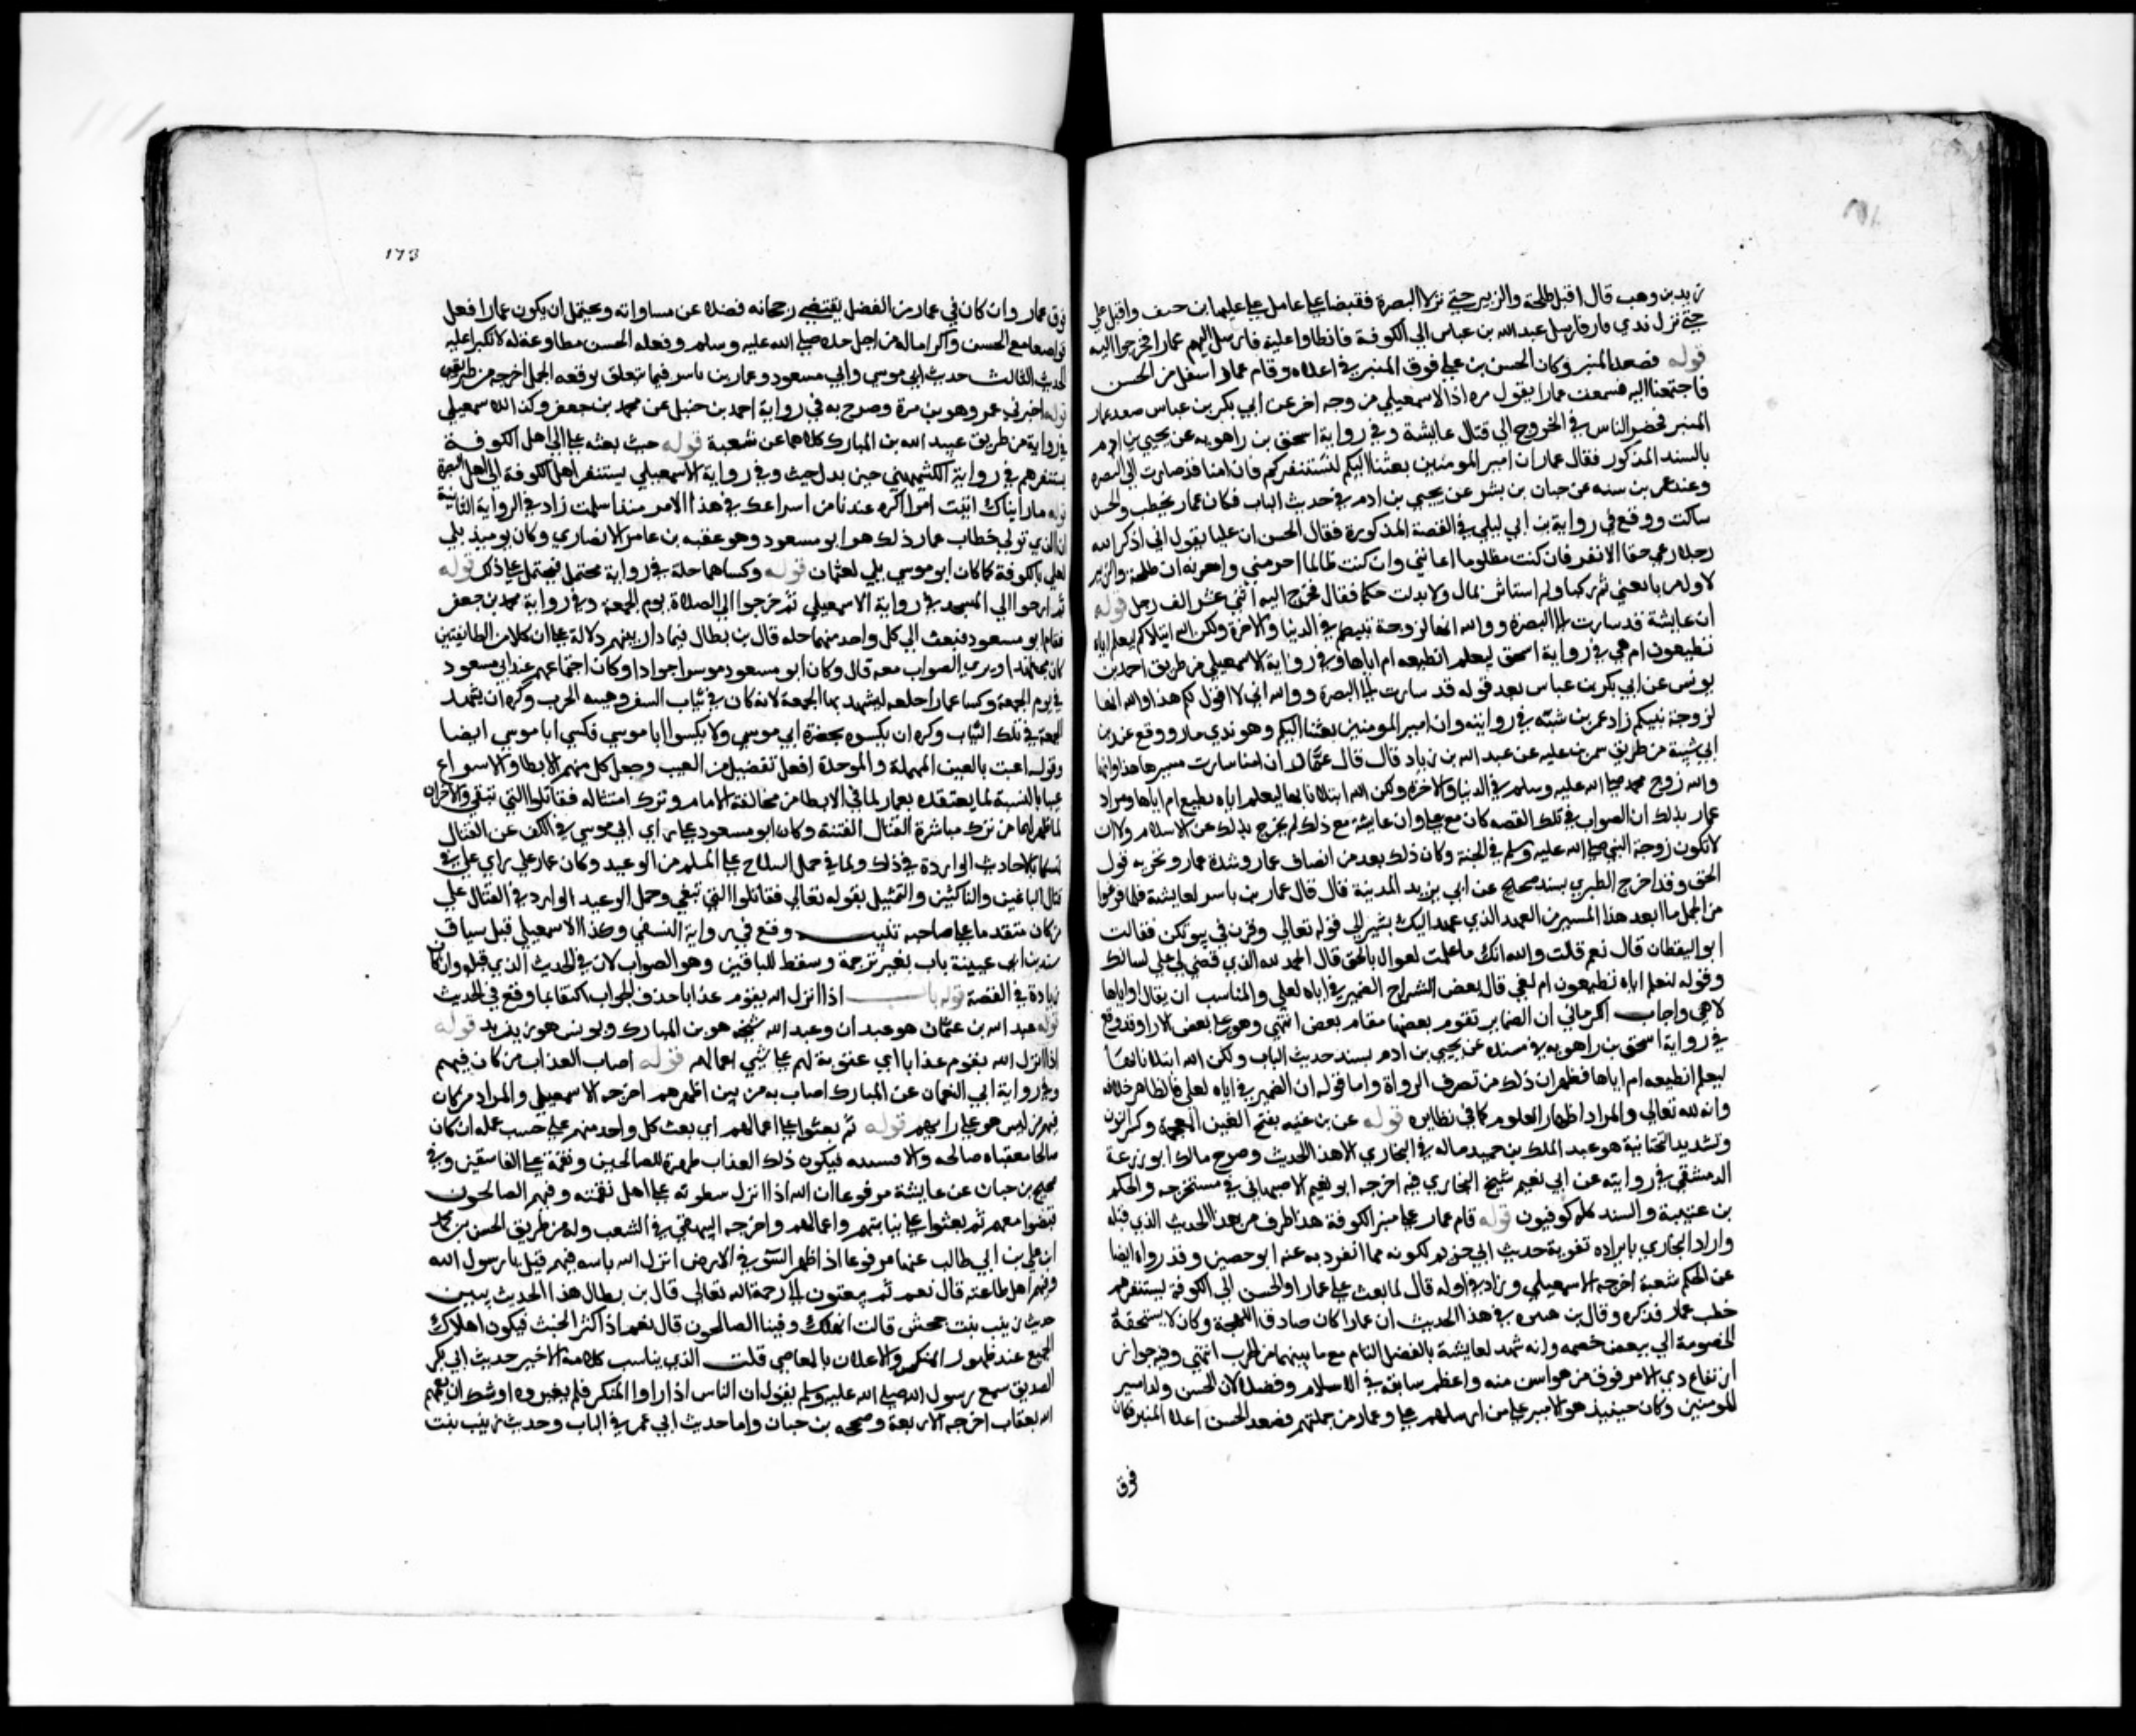 زيد بن وهب قال اقبل طلحة والزبير حتي نزلا البصرة فقبضا علي عامل علي عليها ابن حنيف واقبل علي
حتي نزل بذي قار فارسل عبد الله بن عباس الي الكوفة فابطاوا عليه فارسل اليهم عمارا فخرجوا اليه
قوله فصعدا المنبر وكان الحسن بن علي فوق المنبر في اعلاه وقام عمار اسفل من الحسن
فاجتمعنا اليه فسمعت عمارا يقول زاد الاسمعيلي من وجه اخر عن ابي بكر بن عياش صعد عمار
المنبر فحض الناس في الخروج الي قتال عايشة وفي رواية اسحق بن راهويه عن يحيي بن ادم
بالسند المذكور فقال عمار ان امير المومنين بعثنا اليكم لنستنفركم فان امنا قد صارت الي البصره
وعند عمر بن شبه عن حبان بن بشر عن يحيي بن ادم في حديث الباب فكان عمار يخطب والحسن
ساكت ووقع في رواية بن ابي ليلي في القصة المذكورة فقال الحسن ان عليا يقول اني اذكر الله
رجلا رعي حقا الا نفر فان كنت مظلوما اعانني وان كنت ظالما اخرمني والله ان طلحة والزبير
لاول من بايعني ثم نكثا ولم استاثر بمال ولا بدلت حكما فقال فخرج اليه اثني عشر الف رجل قوله
ان عايشة قد سارت الي البصرة ووالله انها لزوجة نبيكم في الدنيا والاخرة ولكن الله ابتلاكم ليعلم اياه
تطيعون ام هي في رواية اسحق ليعلم انطيعه ام اياها وفي رواية الاسمعيلي من طريق احمد بن
يونس عن ابي بكر بن عياش بعد قوله قد سارت الي البصرة ووالله اني لا اقول لكم هذا والله انها
لزوجة نبيكم زاد عمر بن شبة في روايته وان امير المومنين بعثنا اليكم وهو بذي قار ووقع عند بن
ابي شيبة من طريق شمر بن عطيه عن عبد الله بن زياد قال قال عمار ان امنا سارت مسيرها هذا وانها
والله زوج محمد صلي الله عليه وسلم في الدنيا والاخرة ولكن الله ابتلانا بها ليعلم اياه نطيع ام اياها ومراد
عمار بذلك ان الصواب في تلك القصه كان مع علي وان عايشة مع ذلك لم تخرج بذلك عن الاسلام ولا ان
لا تكون زوجة النبي صلي الله عليه وسلم في الجنة وكان ذلك يعد من انصاف عمار وشدة عمار وتحريه قول
الحق وقد اخرج الطبري بسند صحيح عن ابي يزيد المدينة قال قال عمار بن ياسر لعايشة فلما فرغوا
من الجمل ما ابعد هذا المسير من العهد الذي عهد اليك يشير الي قوله تعالي وقرن في بيوتكن فقالت
ابو اليقظان قال نعم قلت والله انك ما علمت لقوال بالحق قال الحمد لله الذي قضي لي علي لسانك
وقوله ليعلم اياه تطيعون ام هي قال بعض الشراح الضمير في اياه لعلي والمناسب ان يقال او اياها
لا هي واجاب الكرماني ان الضماير تقوم بعضها مقام بعض انتهي وهو علي بعض الارا وقد وقع
في رواية اسحق بن راهويه في مسنده عن يحيي بن ادم بسند حديث الباب ولكن الله ابتلانا بها
ليعلم انطيعه ام اياها فظهر ان ذلك من تصرف الرواة واما قوله ان الضمير في اياه لعلي فالظاهر خلافه
وانه لله تعالي والمراد اظهار المعلوم كما في نظايره قوله عن بن غنيه بفتح الغين المعجمة وكسر النون
وتشديد التحتانية هو عبد الملك بن حميد ماله في البخاري الا هذا الحديث وصرح مالك ابو زرعة
الدمشقي في روايته عن ابي نعيم شيخ البخاري فيه اخرجه ابو نعيم الاصبهاني في مستخرجه والحكم
بن عتيبة والسند كله كوفيون قوله قام عمار علي منبر الكوفة هذا طرف من هذا الحديث الذي قبله
واراد البخاري بايراده تقوية حديث ابي مريم لكونه مما انفرد به عنه ابو حصين وقد رواه ايضا
عن الحكم شعبة اخرجه الاسمعيلي وزاد في اوله قال لما بعث علي عمارا والحسن الي الكوفة يستنفرهم
خطب عمار فذكره وقال بن هبيره في هذا الحديث ان عمارا كان صادق اللهجة وكان لا يستخفه
الخصومة الي ينقص خصمه وانه شهد لعايشة بالفضل التام مع ما بينهما من الحرب انتهي وفيه جواز
ارتفاع ذي الامر فوق من هو اسن منه واعظم سابقة في الاسلام وفضلا لان الحسن ولد امير
المومنين وكان حينيذ هو الامير علي من ارسلهم علي وعمار من جملتهم فصعد الحسن اعلا المنبر فكان
فوق
173
فوق عمار وان كان في عمار من الفضل يقتضي رجحانه فضلا عن مساواته ويحتمل ان يكون عمارا فعل
تواضعا مع الحسن واكراما له من اجل جده صلي الله عليه وسلم وفعله الحسن مطاوعة له لا تكبرا عليه
الحديث الثالث حديث ابي موسي وابي مسعود وعمار بن ياسر فيما يتعلق بوقعه الجمل اخرجه من طريقين
قوله اخبرني عمرو هو بن مرة وصرح به في رواية احمد بن حنبل عن محمد بن جعفر وكذا الاسمعيلي
في رواية من طريق عبد الله بن المبارك كلاهما عن شعبة قوله حيث بعثه علي الي اهل الكوفة
يستنفرهم في رواية الكشميهني حين بدل حيث وفي رواية الاسمعيلي يستنفر اهل الكوفة الي اهل البصرة
قوله ما رايناك اتيت امرا اكره عندنا من اسراعك في هذا الامر منذ اسلمت زاد في الرواية الثانية
ان الذي تولي خطاب عمار ذلك هو ابو مسعود وهو عقبه بن عامر الانصاري وكان يوميذ يلي
لعلي بالكوفة كما كان ابو موسي يلي لعثمان قوله وكساهما حلة في رواية محتمل فيحتمل علي ذكر قوله
ثم راحوا الي المسجد في رواية الاسمعيلي ثم خرجوا الي الصلاة يوم الجمعة وفي رواية محمد بن جعفر
فقام ابو مسعود فبعث الي كل واحد منهما حله قال بن بطال فيما دار بينهم دلالة علي ان كلا من الطايفتين
كان مجتهدا ويري الصواب معه قال وكان ابو مسعود موسرا جوادا وكان اجتماعهم عند ابي مسعود
في يوم الجمعة وكسا عمارا حلعه ليشهد بها الجمعة لانه كان في ثياب السفر وهيبه الحرب وكره ان يشهد
الجمعة في تلك الثياب وكره ان يكسوه بحضرة ابي موسي ولا يكسوا ابا موسي فكسي ابا موسي ايضا
وقوله اعيب بالعين المهملة والموحدة افعل تفضيل من العيب وجعل كل منهم الابطا والاسراع
عيبا بالنسبة لما يعتقده فعمار لما في الابطا من مخالفة الامام وترك امتثاله فقاتلوا التي تبغي والاخران
لما ظهر لهما من ترك مباشرة القتال الفتنة وكان ابو مسعود علي راي ابي موسي في الكف عن القتال
تمسكا بالاحاديث الواردة في ذلك ولما في حمل السلاح علي المسلم من الوعيد وكان عمار علي راي علي في
قتال الباغين والناكثين والتمثيل بقوله تعالي فقاتلوا التي تبغي وحمل الوعيد الوارد في القتال علي
من كان متقدما علي صاحبه تنبيه وقع في رواية النسفي وكذا الاسمعيلي قبل سياق
سند بن ابي عيينة باب بغير ترجمة وسقط للباقين وهو الصواب لان في الحديث الذي قبله وان كان
زيادة في القصة قوله باب اذا انزل الله بقوم عذابا حذف الجواب اكتفا بما وقع في الحديث
قوله عبد الله بن عثمان هو عبدان وعبد الله شيخه هو بن المبارك ويونس هو بن يزيد قوله
اذا انزل الله بقوم عذابا اي عقوبة لهم علي شي اعمالهم قوله اصاب العذاب من كان فيهم
وفي رواية ابي النعمان عن المبارك اصاب به من بين اظهرهم اخرجه الاسمعيلي والمراد من كان
فيهم من ليس هو علي رايهم قوله ثم بعثوا علي اعمالهم اي بعث كل واحد منهم علي حسب عمله ان كان
صالحا فعقباه صالحه والا فسيه فيكون ذلك العذاب طهرة للصالحين ونقمة علي الفاسقين وفي
صحيح بن حبان عن عايشة مرفوعا ان الله اذا انزل سطوته علي اهل نقمته وفيهم الصالحون
قبضوا معهم ثم بعثوا علي نياتهم واعمالهم واخرجه البيهقي في الشعب وله من طريق الحسن بن محمد
ابن علي بن ابي طالب عنها مرفوعا اذا ظهر السوء في الارض انزل الله باسه فيهم قيل يا رسول الله
وفيهم اهل طاعته قال نعم ثم يبعثون الي رحمة الله تعالي قال بن بطال هذا الحديث يبين
حديث زينب بنت جحش قالت انهلك وفينا الصالحون قال نعم اذا كثر الخبث فيكون اهلاك
الجميع عند ظهور المنكر والاعلان بالمعاصي قلت الذي يناسب كلامه الاخير حديث ابي بكر
الصديق سمع رسول الله صلي الله عليه وسلم يقول ان الناس اذا راوا المنكر فلم يغيروه اوشك ان يعمهم
الله بعقاب اخرجه الاربعة وصححه بن حبان واما حديث ابي عمر في الباب وحديث زينب بنت